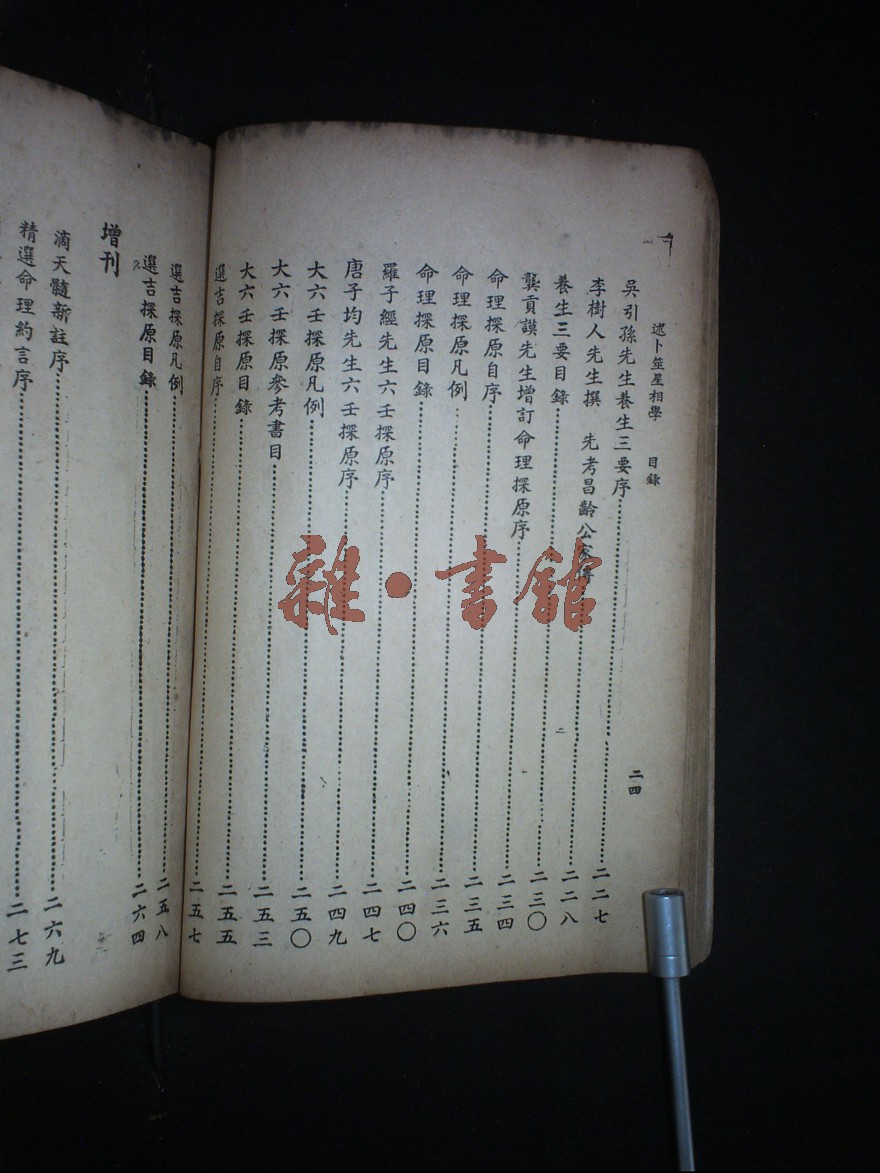 述卜筮星相學　目錄　二四
吳引孫先生養生三要序……二二七
李樹人先生撰　先考昌齡公家傳……二二八
養生三要目錄……二三〇
龔貢謨先生增訂命理探原序……二三四
命理探原自序……二三五
命理探原凡例……二三六
命理探原目錄……二四〇
羅子經先生六壬探原序……二四七
唐子均先生六壬探原序……二四九
大六壬探原凡例……二五〇
大六壬探原參考書目……二五三
大六壬探原目錄……二五五
選吉探原自序……二五七
選吉探原凡例……二五八
選吉探原目錄……二六四
增刊
滴天髓新註序……二六九
精選命理約言序……二七三
雜·書館